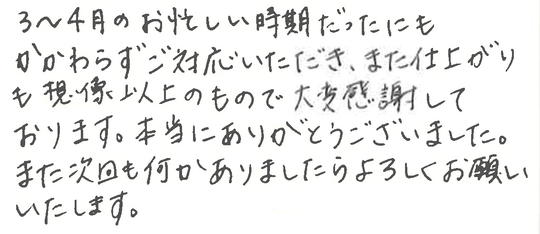 3〜4月のお忙しい時期だったにも
かかわらずご対応いただき、また仕上がり
も想像以上のもので大変感謝して
おります。本当にありがとうございました。
また次回も何かありましたらよろしくお願い
いたします。